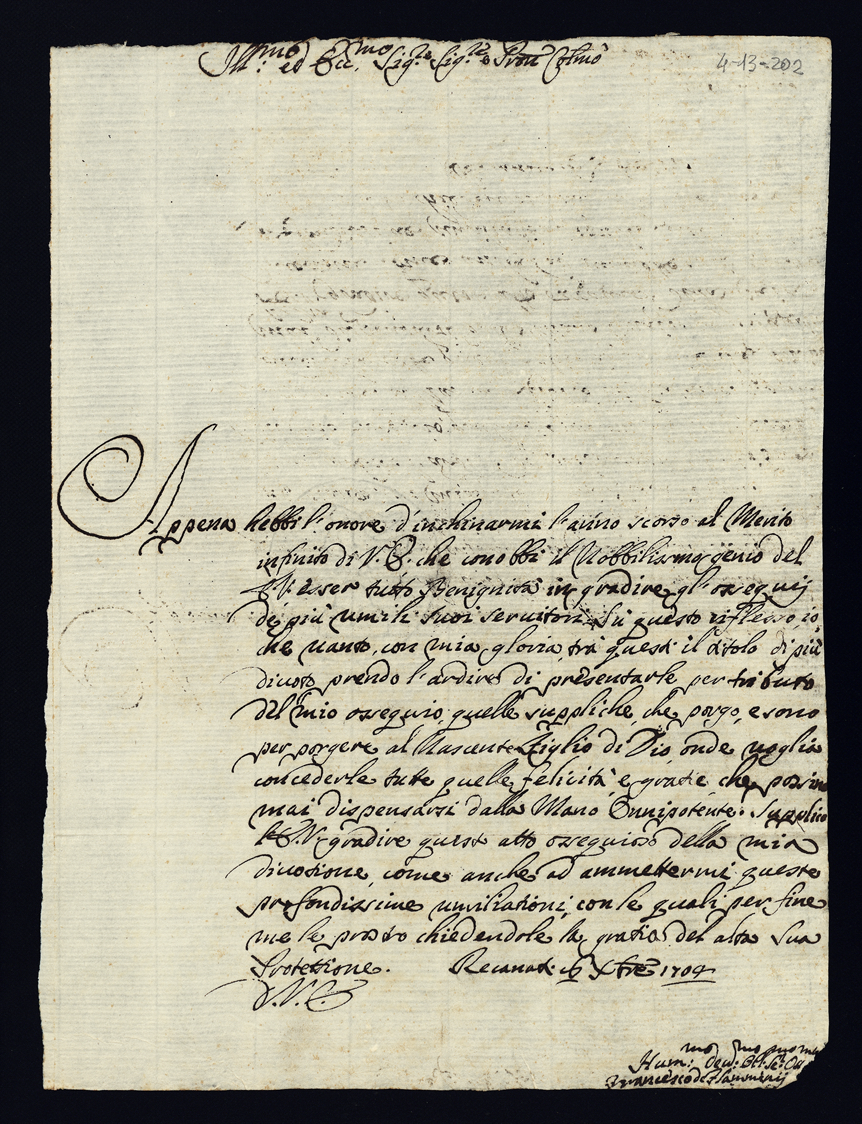 Ill.mo ed Ecc.mo Sig.re Sig.re e Pron Colmo
4-13-202
Appena hebbi l'onore d'inchinarmi l'anno scorso al Merito
infinito di V.E. che conobbi il Nobbilissimo genio del
E.V. esser tutto Benignità in gradire gl'ossequij
de più umili suoi servitori. Sù questo riflesso io,
che vanto, con mia gloria, trà questi il titolo di più
divoto prendo l'ardire di presentarle per tributo
del mio ossequio, quelle suppliche, che porgo, e sono
per porgere al Nascente Figlio di Dio, onde voglia
concederle tutte quelle felicità, e gratie, che possino
mai dispensarsi dalla Mano Onnipotente. Supplico
l'E.V. gradire quest' atto ossequioso della mia
divotione, come anche ad ammettermi queste
profondissime umiliationi, con le quali per fine
me le prostro chiedendole la gratia del alta Sua
Protettione. Recanati Xbre 1704
D.V.E.
Hum.mo Dev.mo Obl.mo Se.
Francesco de Flamminij